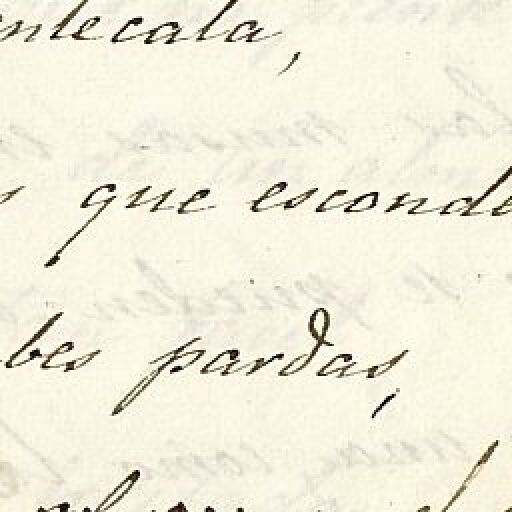 ntecala,
que esconde
bes pardas,